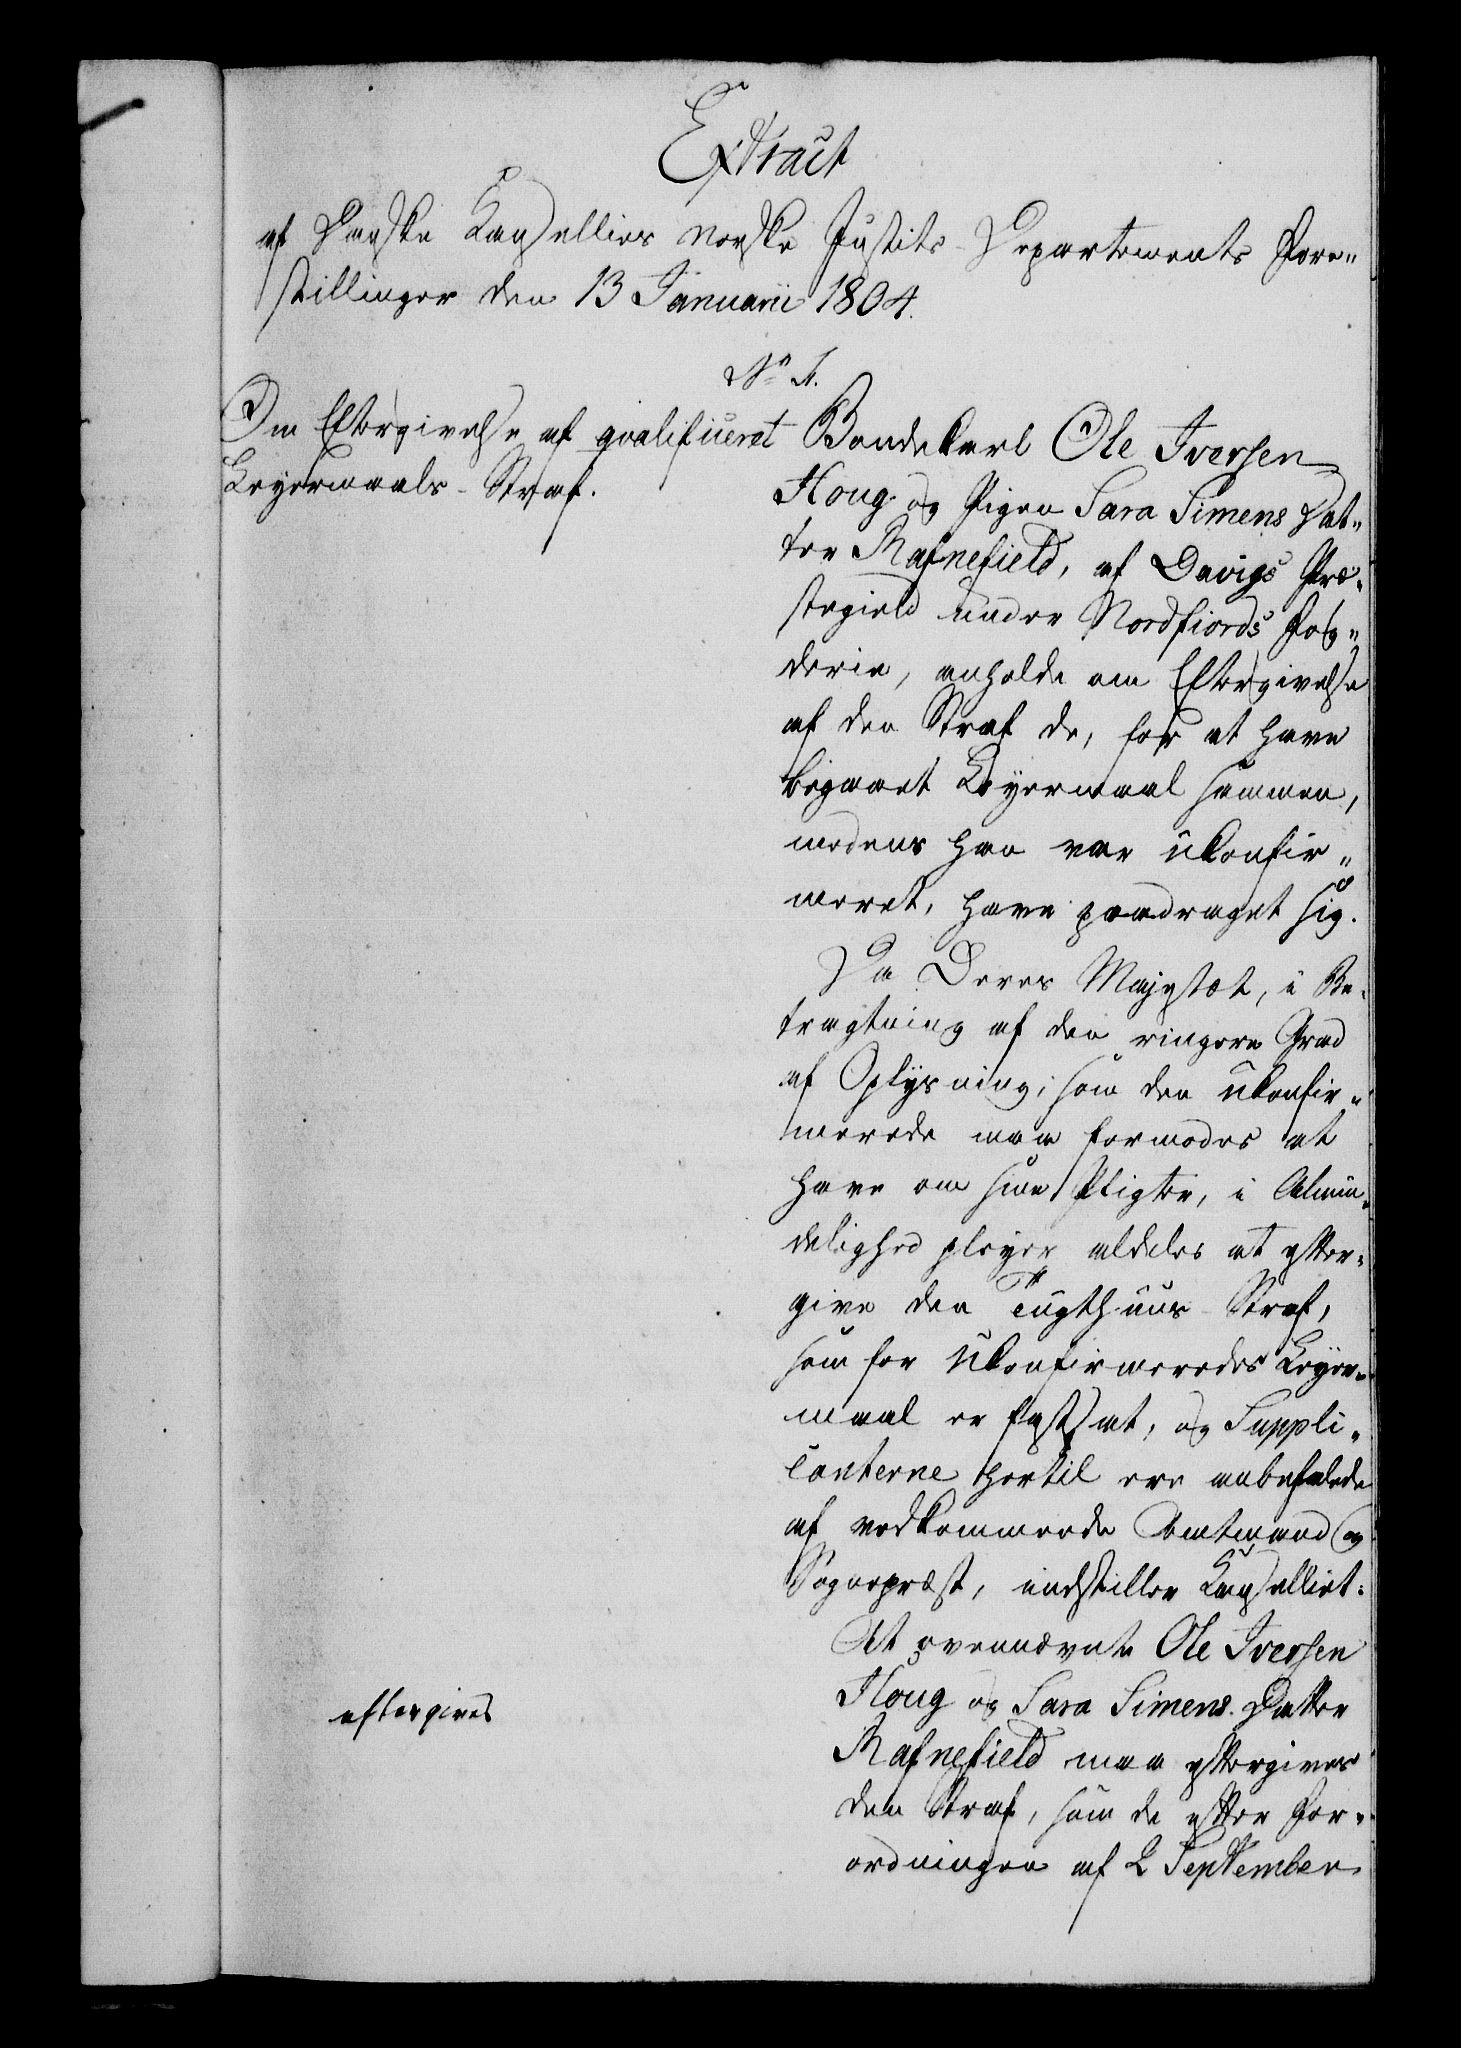 Extract
af Danske Kancellies norske Justits-Departements Fore„
stillinger den 13 Januarii 1804.
No 1.
Om Eftergivelse af qvalificeret
Leyermaals-Straf.
Bondekarl Ole Iversen
Houg og Pigen Sara Simens Dat„
ter Rafnefield, af Davigs Præ„
stegield under Nordfiords Fog„
derie, anholde om Eftergivelse
af den Straf de, for at have
begaaet Leyermaal sammen,
medens han var ukonfir„
meret, have paadraget sig.
Da Deres Majestæt, i Be„
tragtning af den ringere Grad
af Oplysning, som den ukonfir„
merede maa formodes at
have om sine Pligter, i Almin„
delighed pleyer aldeles at efter„
give den Tugthuus-Straf,
som for ukonfirmeredes Leyer„
maal er fastsat, og Suppli„
canterne hertil ere anbefalede
af vedkommende Amtmand og
Sognepræst, indstiller Kancelliet:
At ovennævnte Ole Iversen
Houg og Sara Simens Datter
Rafnefield maa eftergives
den Straf, som de efter For„
ordningen af 2 September
eftergives